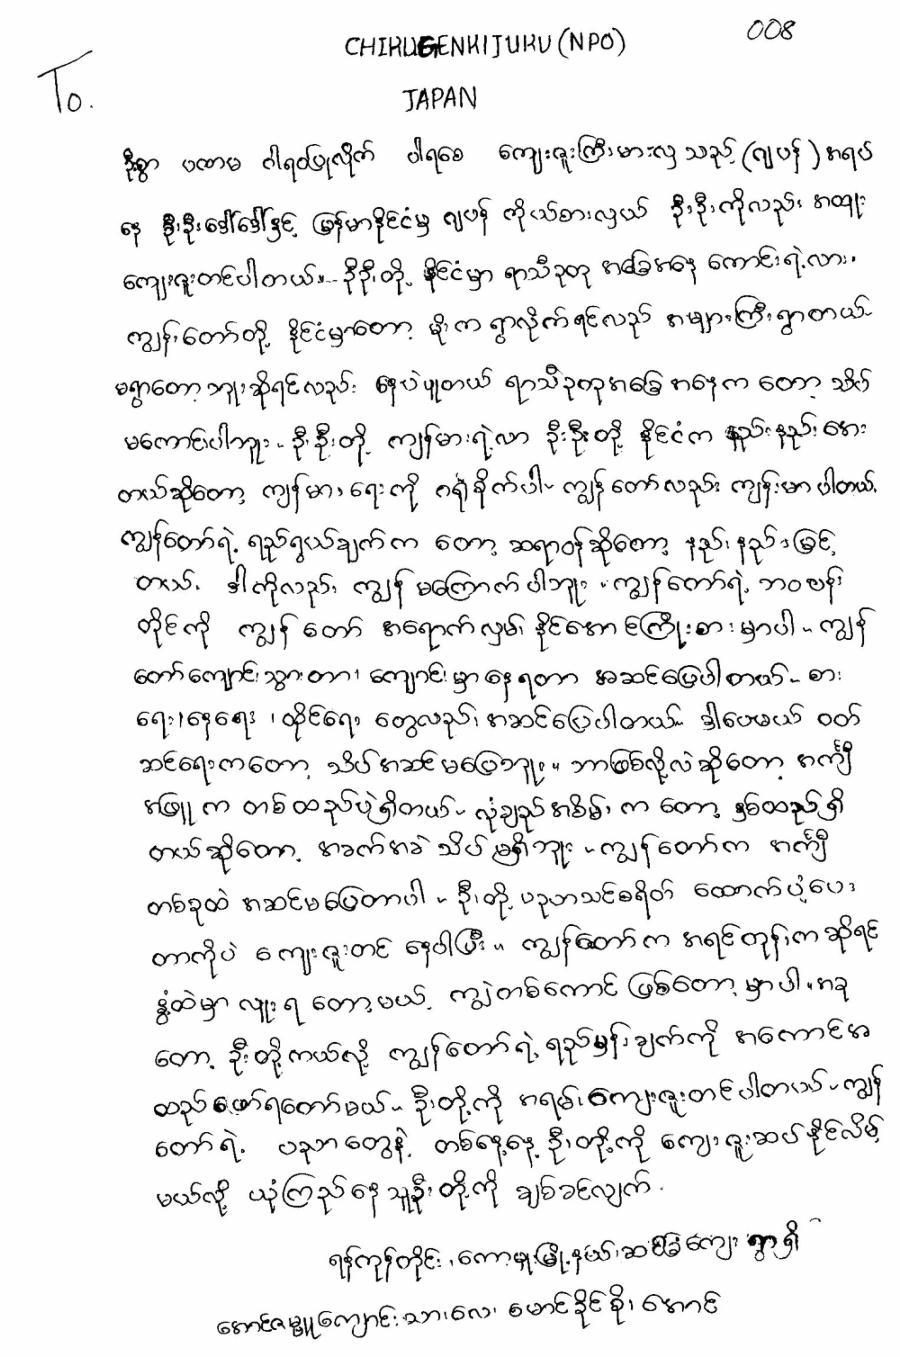 008
CHIKUGENKIJUKU (NPO)
To.
JAPAN
ဦးစွာ ပဏာမ ဂါရဝပြုလိုက် ပါရစေ ကျေးဇူးကြီးမားလှ သည့် (ဂျပန်) အရပ်
နေ ဦးဦးဒေါ်ဒေါ်နှင့် မြန်မာနိုင်ငံမှ ဂျပန် ကိုယ်စားလှယ် ဦးဦးကိုလည်း အထူး
ကျေးဇူးတင်ပါတယ်။ ဦးဦးတို့ နိုင်ငံမှာ ရာသီဥတု အခြေအနေ ကောင်းရဲ့လား၊
ကျွန်တော်တို့ နိုင်ငံမှာတော့ မိုးက ရွာလိုက်ရင်လည် အများကြီးရွာတယ်
မရွာတော့ဘူးဆိုရင်လည်း နေပဲပူတယ် ရာသီဥတုအခြေ အနေက တော့ သိပ်
မကောင်းပါဘူး။ ဦးဦးတို့ ကျန်မာရဲ့လာ ဦးဦးတို့ နိုင်ငံက နည်းနည်းအေး
တယ်ဆိုတော့ ကျန်မာရေးကို ဂရုစိုက်ပါ။ ကျွန်တော်လည်း ကျန်းမာပါတယ်.
ကျွန်တော်ရဲ့ ရည်ရွယ်ချက်က တော့ ဆရာဝန်ဆိုတော့ နည်းနည်းမြင့်
တယ်. ဒါကိုလည်း ကျွန် မကြောက်ပါဘူး။ ကျွန်တော်ရဲ့ ဘဝပန်း
တိုင်ကို ကျွန် တော် အရောက်လှမ်းနိုင်အောင်ကြိုးစားမှာပါ။ ကျွန်
တော်ကျောင်းသွားတာ၊ ကျောင်းမှာနေရတာ အဆင်ပြေပါတယ်။ စား
ရေး၊နေရေး၊ထိုင်ရေး တွေလည်း အဆင်ပြေပါတယ်။ ဒါပေမယ် ဝတ်
ဆင်ရေးကတော့ သိပ်အဆင်မပြေဘူး။ ဘာဖြစ်လို့လဲဆိုတော့ အင်္ကျီ
အဖြူက တစ်ထည်ပဲရှိတယ်။ လုံချည်အစိမ်းက တော့ နှစ်ထည်ရှိ
တယ်ဆိုတော့ အခက်အခဲ သိပ်မရှိဘူး။ ကျွန်တော်က အင်္ကျီ
တစ်ခုထဲ အဆင်မပြေတာပါ။ ဦးတို့ ပညာသင်စရိတ် ထောက်ပံ့ပေး
တာကိုပဲ ကျေးဇူးတင် နေပါပြီး။ ကျွန်တော်က အရင်တုန်းက ဆိုရင်
နွံထဲမှာ လူးရ တော့မယ့် ကျွဲတစ်ကောင် ဖြစ်တော့မှာပါ။အခု
တော့ ဦးတို့ကယ်လို့ ကျွန်တော်ရဲ့ ရည်မှန်းချက်ကို အကောင်အ
ထည်ဖော်ရတော်မယ်။ ဦးတို့ကို အရမ်းကျေးဇူးတင်ပါတယ်။ ကျွန်
တော်ရဲ့ ပညာတွေနဲ့ တစ်နေ့နေ့ ဦးတို့ကို ကျေးဇူးဆပ်နိုင်လိမ့်
မယ်လို့ ယုံကြည်နေသူဦးတို့ကို ချစ်ခင်လျက်.
ရန်ကုန်တိုင်း၊ကော့မှူးမြို့နယ်၊ဆင်ခြံကျေးရွာရှိ
အောင်ဇမ္ဗူကျောင်းသားလေး မောင်ခိုင်စိုးအောင်